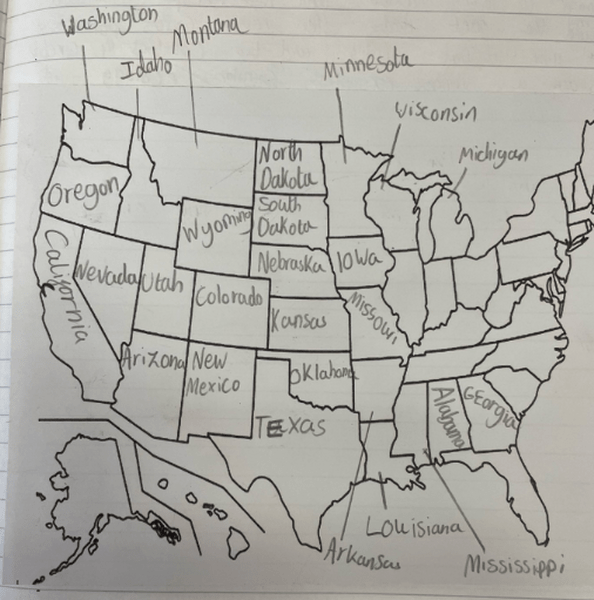 Washington
Montana
Idaho
Minnesota
Wisconsin
Michigan
North
Dakota
Oregon
South
Dakota
Wyoming
California
Nevada
Utah
Nebraska
Iowa
Colorado
Kansas
Missouri
Arizona
New
Mexico
Oklahoma
Texas
Alabama
Georgia
Louisiana
Arkansas
Mississippi